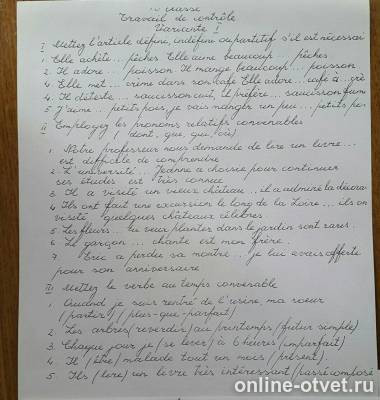 classe
Travail de contrôle
Variante I
I Mettez l'article défini, indéfini ou partitif s'il est nécessai
1. Elle achète... pêches. Elle aime beaucoup ... pêches
2. Il adore... poisson. Il mange beaucoup... poisson
3. Elle met ... crème dans son café. Elle adore... café à...crè
4. Il déteste... saucisson cuit, il préfère... saucisson fum
5. J'aime... petits pois, je vais manger un peu... petits po
II Employez les pronoms relatifs convenables
(dont, que, qui, où)
1. Notre professeur nous demande de lire un livre...
est difficile de comprendre
2. L'université... Jeanne a choisie pour continuer
ses études est très connue
3. Il a visité un vieux château... il a admiré la décora
4. Ils ont fait une excursion le long de la Loire... ils on
visité quelques châteaux célèbres.
5. Les fleurs... tu veux planter dans le jardin sont rares.
6. Le garçon... chante est mon frère.
7. Eric a perdu sa montre... je lui avais offerte
pour son anniversaire
III Mettez le verbe au temps convenable
1. Quand je suis rentré de l'usine, ma soeur
(partir) (plus-que-parfait)
2. Les arbres (reverdir) au printemps (futur simple)
3. Chaque jour je (se lever) à 6 heures (imparfait)
4. Il (être) malade tout un mois (présent).
5. Ils (lire) un livre très intéressant (passé composé
online-otvet.ru